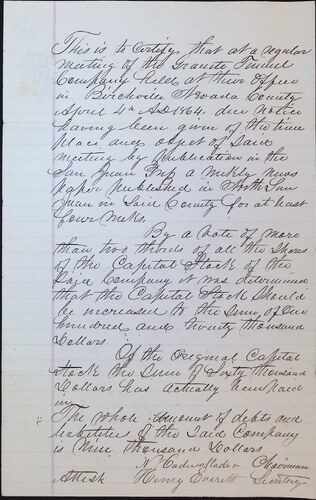 This is to certify, that at a regular
meeting of the Granite Tunnel
Company held at their Office
in Birchville Nevada County
April 4th A.D. 1864. due notice
having been given of the time
place, and object of said
meeting by publication in the
San Juan Press a weekly news
paper published in North San
Juan in said County for at least
four weeks.
By a vote of more
than two thirds of all the Shares
of the Capital Stock of the
said Company it was determined
that the Capital Stock should
be increased to the Sum of One
hundred and twenty thousand
Dollars.
Of the original Capital
Stock the Sum of Sixty thousand
Dollars has actually been paid
in,
The whole amount of debts and
liabilities of the said Company
is Nine thousand Dollars
N. Cadwallader Chairman
Attest Henry Everett Secretary